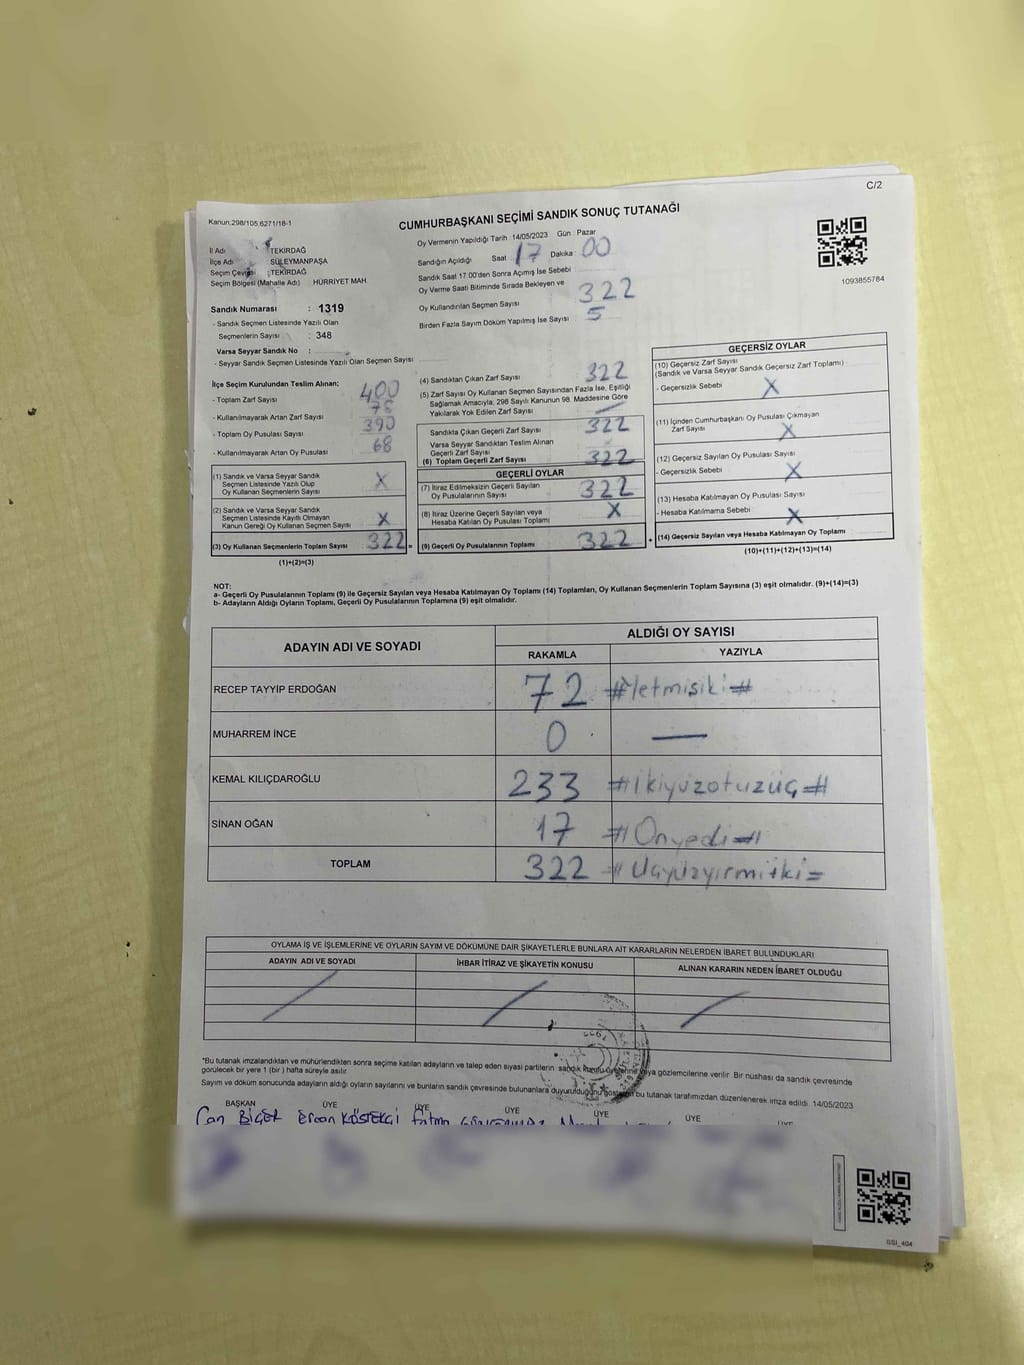 C/2
Kanun:298/105.6271/18-1
CUMHURBAŞKANI SEÇİMİ SANDIK SONUÇ TUTANAĞI
İl Adı : TEKİRDAĞ
İlçe Adı : SÜLEYMANPAŞA
Seçim Çevresi : TEKİRDAĞ
Seçim Bölgesi (Mahalle Adı) HÜRRİYET MAH.
Sandık Numarası : 1319
- Sandık Seçmen Listesinde Yazılı Olan
Seçmenlerin Sayısı : 348
Varsa Seyyar Sandık No :
- Seyyar Sandık Seçmen Listesinde Yazılı Olan Seçmen Sayısı
Oy Vermenin Yapıldığı Tarih : 14/05/2023 Gün : Pazar
Sandığın Açıldığı Saat : 17 Dakika : 00
Sandık Saat 17.00'den Sonra Açımış İse Sebebi
Oy Verme Saati Bitiminde Sırada Bekleyen ve
Oy Kullandırılan Seçmen Sayısı 322
Birden Fazla Sayım Döküm Yapılmış İse Sayısı 5
1093855784
İlçe Seçim Kurulundan Teslim Alınan;
- Toplam Zarf Sayısı 400
- Kullanılmayarak Artan Zarf Sayısı 78
- Toplam Oy Pusulası Sayısı 390
- Kullanılmayarak Artan Oy Pusulası 68
(1) Sandık ve Varsa Seyyar Sandık
Seçmen Listesinde Yazılı Olup
Oy Kullanan Seçmenlerin Sayısı X
(2) Sandık ve Varsa Seyyar Sandık
Seçmen Listesinde Kayıtlı Olmayan
Kanun Gereği Oy Kullanan Seçmen Sayısı X
(3) Oy Kullanan Seçmenlerin Toplam Sayısı 322 =
(1)+(2)=(3)
(4) Sandıktan Çıkan Zarf Sayısı 322
(5) Zarf Sayısı Oy Kullanan Seçmen Sayısından Fazla İse, Eşitliği
Sağlamak Amacıyla; 298 Sayılı Kanunun 98. Maddesine Göre
Yakılarak Yok Edilen Zarf Sayısı
Sandıkta Çıkan Geçerli Zarf Sayısı 322
Varsa Seyyar Sandıktan Teslim Alınan
Geçerli Zarf Sayısı
(6) Toplam Geçerli Zarf Sayısı 322
GEÇERLİ OYLAR
(7) İtiraz Edilmeksizin Geçerli Sayılan
Oy Pusulalarının Sayısı 322
(8) İtiraz Üzerine Geçerli Sayılan veya
Hesaba Katılan Oy Pusulası Toplamı X
(9) Geçerli Oy Pusulalarının Toplamı 322 +
GEÇERSİZ OYLAR
(10) Geçersiz Zarf Sayısı
(Sandık ve Varsa Seyyar Sandık Geçersiz Zarf Toplamı)
- Geçersizlik Sebebi X
(11) İçinden Cumhurbaşkanı Oy Pusulası Çıkmayan
Zarf Sayısı X
(12) Geçersiz Sayılan Oy Pusulası Sayısı
- Geçersizlik Sebebi X
(13) Hesaba Katılmayan Oy Pusulası Sayısı
- Hesaba Katılmama Sebebi X
(14) Geçersiz Sayılan veya Hesaba Katılmayan Oy Toplamı
(10)+(11)+(12)+(13)=(14)
NOT:
a- Geçerli Oy Pusulalarının Toplamı (9) ile Geçersiz Sayılan veya Hesaba Katılmayan Oy Toplamı (14) Toplamları, Oy Kullanan Seçmenlerin Toplam Sayısına (3) eşit olmalıdır. (9)+(14)=(3)
b- Adayların Aldığı Oyların Toplamı, Geçerli Oy Pusulalarının Toplamına (9) eşit olmalıdır.
ADAYIN ADI VE SOYADI ALDIĞI OY SAYISI
RAKAMLA YAZIYLA
RECEP TAYYİP ERDOĞAN 72 #Yetmişiki#
MUHARREM İNCE 0 —
KEMAL KILIÇDAROĞLU 233 #İkiyüzotuzüç#
SİNAN OĞAN 17 #Onyedi#
TOPLAM 322 #Üçyüzyirmiiki=
OYLAMA İŞ VE İŞLEMLERİNE VE OYLARIN SAYIM VE DÖKÜMÜNE DAİR ŞİKAYETLERLE BUNLARA AİT KARARLARIN NELERDEN İBARET BULUNDUKLARI
ADAYIN ADI VE SOYADI İHBAR İTİRAZ VE ŞİKAYETİN KONUSU ALINAN KARARIN NEDEN İBARET OLDUĞU
*Bu tutanak imzalandıktan ve mühürlendikten sonra seçime katılan adayların ve talep eden siyasi partilerin sandık kurulu üyelerine veya gözlemcilerine verilir. Bir nüshası da sandık çevresinde
görülecek bir yere 1 (bir) hafta süreyle asılır.
Sayım ve döküm sonucunda adayların aldığı oyların sayılarını ve bunların sandık çevresinde bulunanlara duyurulduğunu gösteren bu tutanak tarafımızdan düzenlenerek imza edildi. 14/05/2023
BAŞKAN ÜYE ÜYE ÜYE ÜYE ÜYE ÜYE
Can BİÇER Ercan KÖSTEKÇİ Fatma
GSI_404